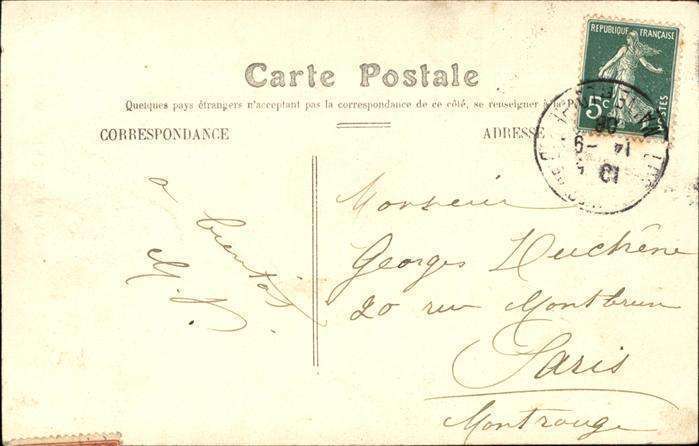 REPUBLIQUE FRANÇAISE
5c
POSTES
Carte Postale
Quelques pays étrangers n'acceptent pas la correspondance de ce côté, se renseigner à la
CORRESPONDANCE
ADRESSE
a
bientot
G. D.
Monsieur
Georges Duchêne
20 rue Montbrun
Paris
Montrouge